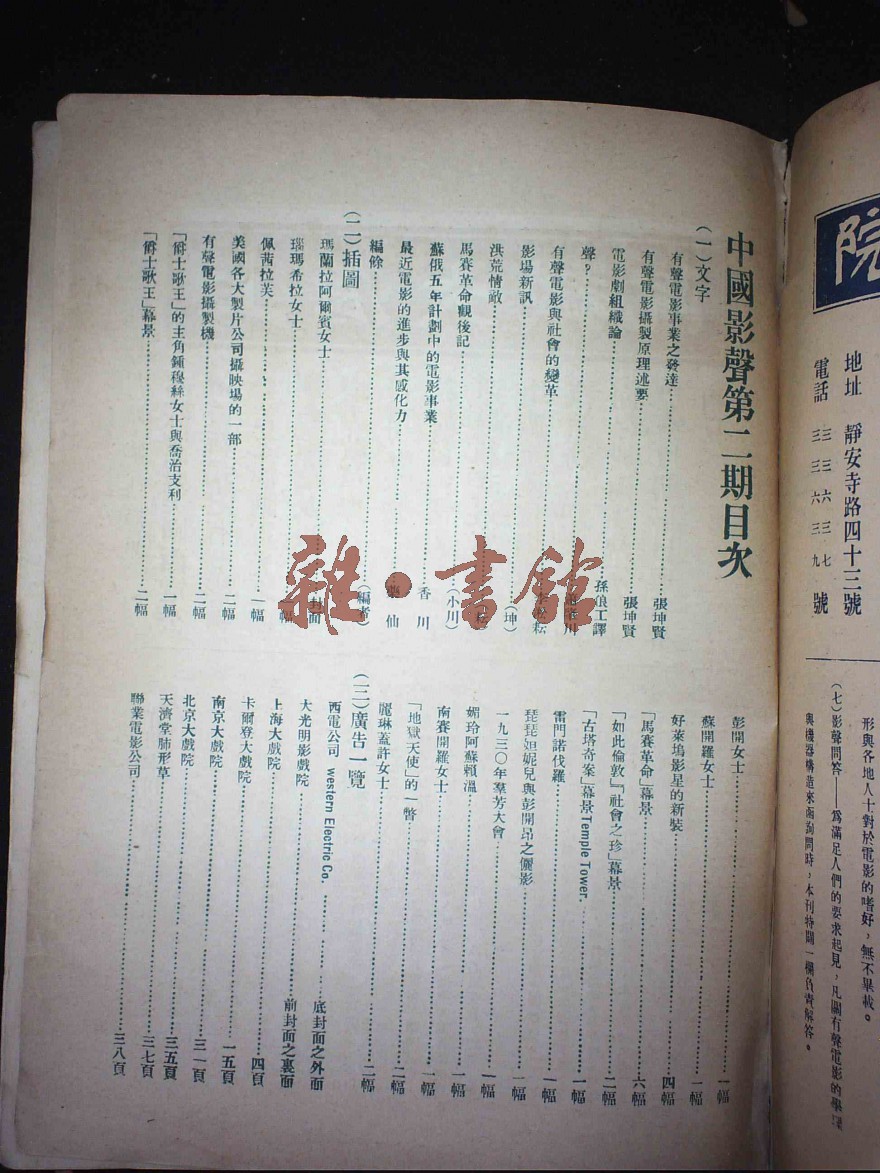 中國影聲第二期目次
(一)文字
有聲電影事業之發達 張坤賢
有聲電影攝製原理述要 張坤賢
電影劇組織論 孫俍工譯
聲?
有聲電影與社會的變革
影場新訊 (坤)
洪荒情敵
馬賽革命觀後記 (小川)
蘇俄五年計劃中的電影事業 香川
最近電影的進步與其感化力 仙
編餘 (編者)
(二)插圖
瑪蘭拉阿爾賓女士 封面
瑙瑪希拉女士 幅
佩茜拉芙 一幅
美國各大製片公司攝映場的一部 二幅
有聲電影攝製機 二幅
「爵士歌王」的主角鍾穆絲女士與喬治支利 一幅
「爵士歌王」幕景 二幅
彭開女士 一幅
蘇開羅女士 一幅
好萊塢影星的新裝 四幅
「馬賽革命」幕景 六幅
「如此倫敦」「社會之珍」幕景 二幅
「古塔奇案」幕景 Temple Tower. 一幅
雷門諾伐羅 一幅
琵琵妲妮兒與彭開昂之儷影 一幅
一九三〇年羣芳大會 一幅
媚玲阿蘇賴溫 一幅
南賽開羅女士 一幅
「地獄天使」的一瞥 二幅
麗琳蓋許女士 二幅
(三)廣告一覽
西電公司 western Electric Co. 底封面之外面
大光明影戲院 前封面之裏面
上海大戲院 四頁
卡爾登大戲院 一五頁
南京大戲院 三一頁
北京大戲院 三五頁
天濟堂肺形草 三七頁
聯業電影公司 三八頁
院
地址 靜安寺路四十三號
電話 三三六三七
三三六三九 號
形與各地人士對於電影的嗜好,無不畢載。
(七)影聲問答——爲滿足人們的要求起見,凡關有聲電影的學理
與機器構造來函詢問時,本刊特闢一欄負責解答。
雜·書館